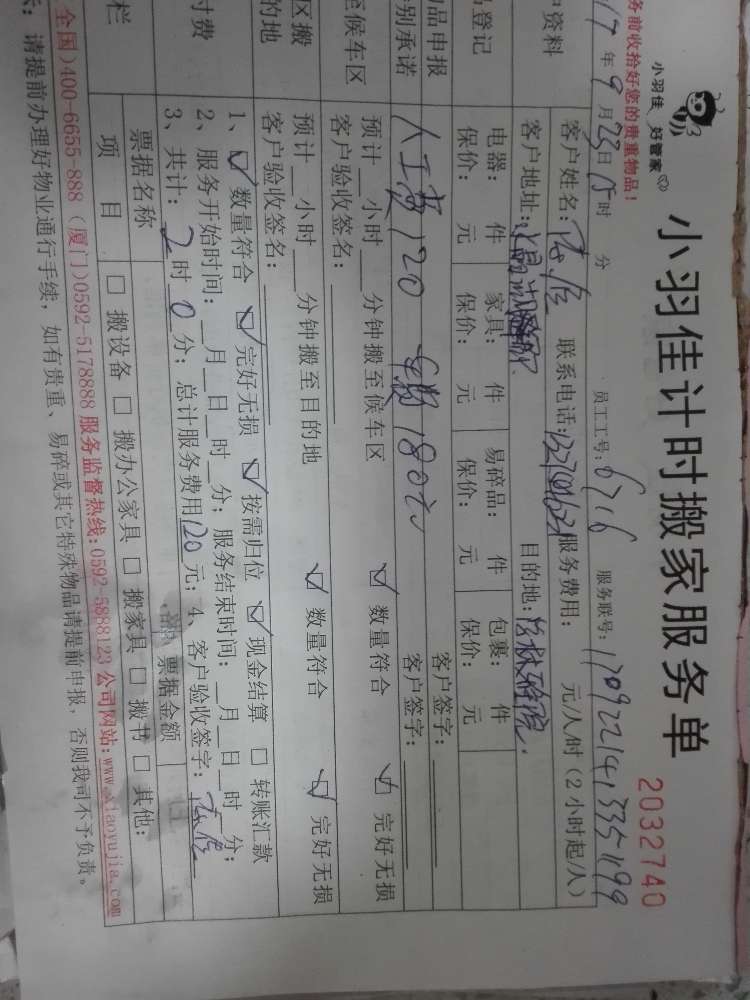 务前收拾好您的贵重物品!
小羽佳 好管家
小羽佳计时搬家服务单
2032740
17年9月23日15时 分 员工工号:6716 服务联号:
户资料
客户姓名: 联系电话: 服务费用: 元/人/时(2小时起/人)
客户地址: 目的地:
品登记
电器: 件 家具: 件 易碎品: 件 包裹: 件
保价: 元 保价: 元 保价: 元 保价: 元
品申报 客户签字:
别承诺 人工费120 车费180元 客户签字:
至候车区
预计__小时__分钟搬至候车区 ☑ 数量符合 ☑ 完好无损
客户验收签名:
区搬
的地
预计__小时__分钟搬至目的地 ☑ 数量符合 ☑ 完好无损
客户验收签名:
付费
1、☑ 数量符合 ☑ 完好无损 ☑ 按需归位 ☑ 现金结算 □ 转账汇款
2、服务开始时间:__月__日__时__分;服务结束时间:__月__日__时__分;
3、共计:2时0分;总计服务费用120元;4、客户验收签字:
栏
票据名称 票据金额
项目 □ 搬设备 □ 搬办公家具 □ 搬家具 □ 搬书 □ 其他:
全国)400-6655-888 (厦门)0592-5178888 服务监督热线:0592-5888123 公司网站:www.xiaoyujia.com
示:请提前办理好物业通行手续,如有贵重、易碎或其它特殊物品请提前申报,否则我司不予负责。